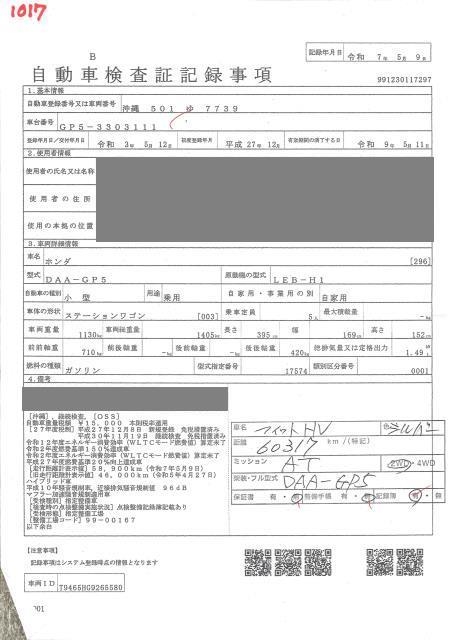 1017
B
自動車検査証記録事項
記録年月日 令和 7年 5月 9日
991230117297
1.基本情報
自動車登録番号又は車両番号 沖縄 501 ゆ 7739
車台番号 GP5-3303111
登録年月日/交付年月日 令和 3年 5月12日 初度登録年月 平成27年12月 有効期間の満了する日 令和 9年 5月11日
2.使用者情報
使用者の氏名又は名称
使用者の住所
使用の本拠の位置
3.車両詳細情報
車名 ホンダ [296]
型式 DAA-GP5 原動機の型式 LEB-H1
自動車の種別 小型 用途 乗用 自家用・事業用の別 自家用
車体の形状 ステーションワゴン [003] 乗車定員 5人 最大積載量 -kg
車両重量 1130kg 車両総重量 1405kg 長さ 395cm 幅 169cm 高さ 152cm
前前軸重 710kg 前後軸重 -kg 後前軸重 -kg 後後軸重 420kg 総排気量又は定格出力 1.49L
燃料の種類 ガソリン 型式指定番号 17574 類別区分番号 0001
4.備考
[沖縄], 継続検査, [OSS]
自動車重量税額 ¥15,000 本則税率適用
[27年度税制] 平成27年12月8日 新規登録 免税措置済み
平成30年11月19日 継続検査 免税措置済み
令和12年度エネルギー消費効率(WLTCモード燃費値)算定未了
平成27年度燃費基準20%向上達成車
[走行距離計表示値] 58,900km (令和7年5月9日)
[旧走行距離計表示値] 46,000km (令和5年4月27日)
ハイブリッド車
平成10年騒音規制車, 近接排気騒音規制値 96dB
マフラー加速騒音規制適用車
[受検種別] 指定整備車
[検査時の点検整備実施状況] 点検整備記録簿記載あり
[受検形態] 指定整備工場
[整備工場コード] 99-00167
以下余白
車名 フィットHV 色 シルバー
距離 60317 km/(特記)
ミッション AT 2WD・4WD
架装・フル型式 DAA-GP5
保証書 有・無 整備手帳 有・無 記録簿 有・無
[注意事項]
記録事項はシステム登録時点の情報となります
車両ID T9465HG9265580